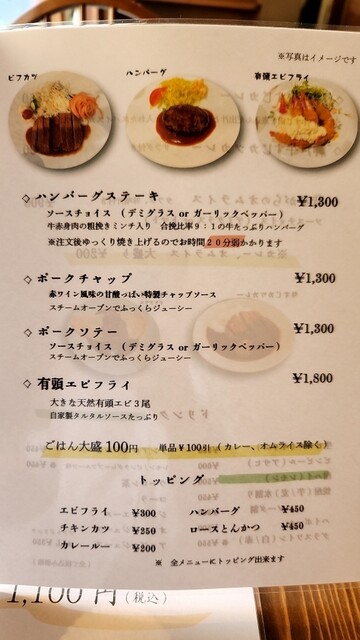 ※写真はイメージです
ビフカツ
ハンバーグ
有頭エビフライ
◇ ハンバーグステーキ ¥1,300
ソースチョイス （デミグラス or ガーリックペッパー）
牛赤身肉の粗挽きミンチ入り 合挽比率9：1の牛たっぷりハンバーグ
※注文後ゆっくり焼き上げるのでお時間20分弱かかります
◇ ポークチャップ ¥1,300
赤ワイン風味の甘酸っぱい特製チャップソース
スチームオーブンでふっくらジューシー
◇ ポークソテー ¥1,300
ソースチョイス （デミグラス or ガーリックペッパー）
スチームオーブンでふっくらジューシー
◇ 有頭エビフライ ¥1,800
大きな天然有頭エビ3尾
自家製タルタルソースたっぷり
ごはん大盛100円 単品¥100引（カレー、オムライス除く）
トッピング
エビフライ ¥300 ハンバーグ ¥450
チキンカツ ¥250 ロースとんかつ ¥450
カレールー ¥200
※ 全メニューにトッピング出来ます
1,100円（税込）